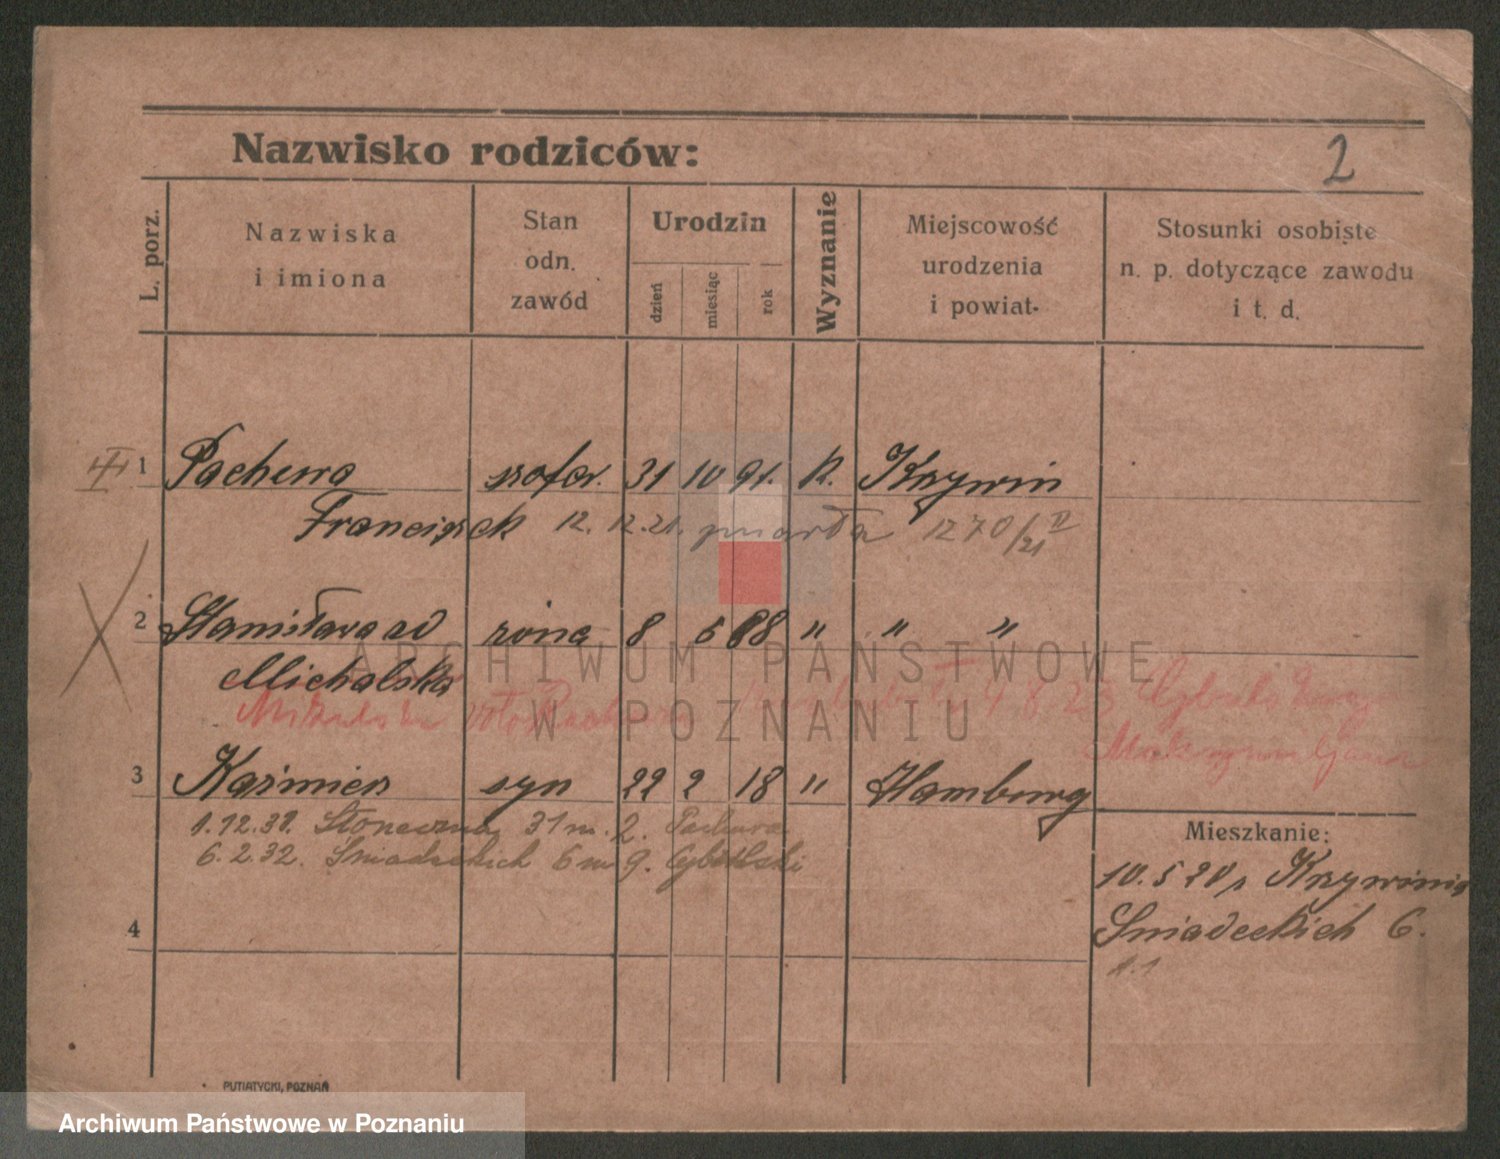 Nazwisko rodziców:
2
L. porz.
Nazwiska
i imiona
Stan
odn.
zawód
Urodzin
dzień
miesiąc
rok
Wyznanie
Miejscowość
urodzenia
i powiat.
Stosunki osobiste
n. p. dotyczące zawodu
i t. d.
1 Pachura szofer. 31 10 91. K. Krzywin
Franciszek 12. 12. 21. zmarła 1270/21 IV
2 Stanisława zd żona 8 5 88 " " "
Michalska
Michalska voto Pachura 4 8 23 Cybulski
3 Kaźmierz syn 22 2 18 " Hamburg
1.12.31. Słoneczna 31 m. 2. Pachura
6.2.32. Śniadeckich 6 m 9. Cybulski
Mieszkanie:
10.5 20 z Krzywinia
Śniadeckich 6.
4
PUTIATYCKI, POZNAŃ
ARCHIWUM PAŃSTWOWE
W POZNANIU
Archiwum Państwowe w Poznaniu